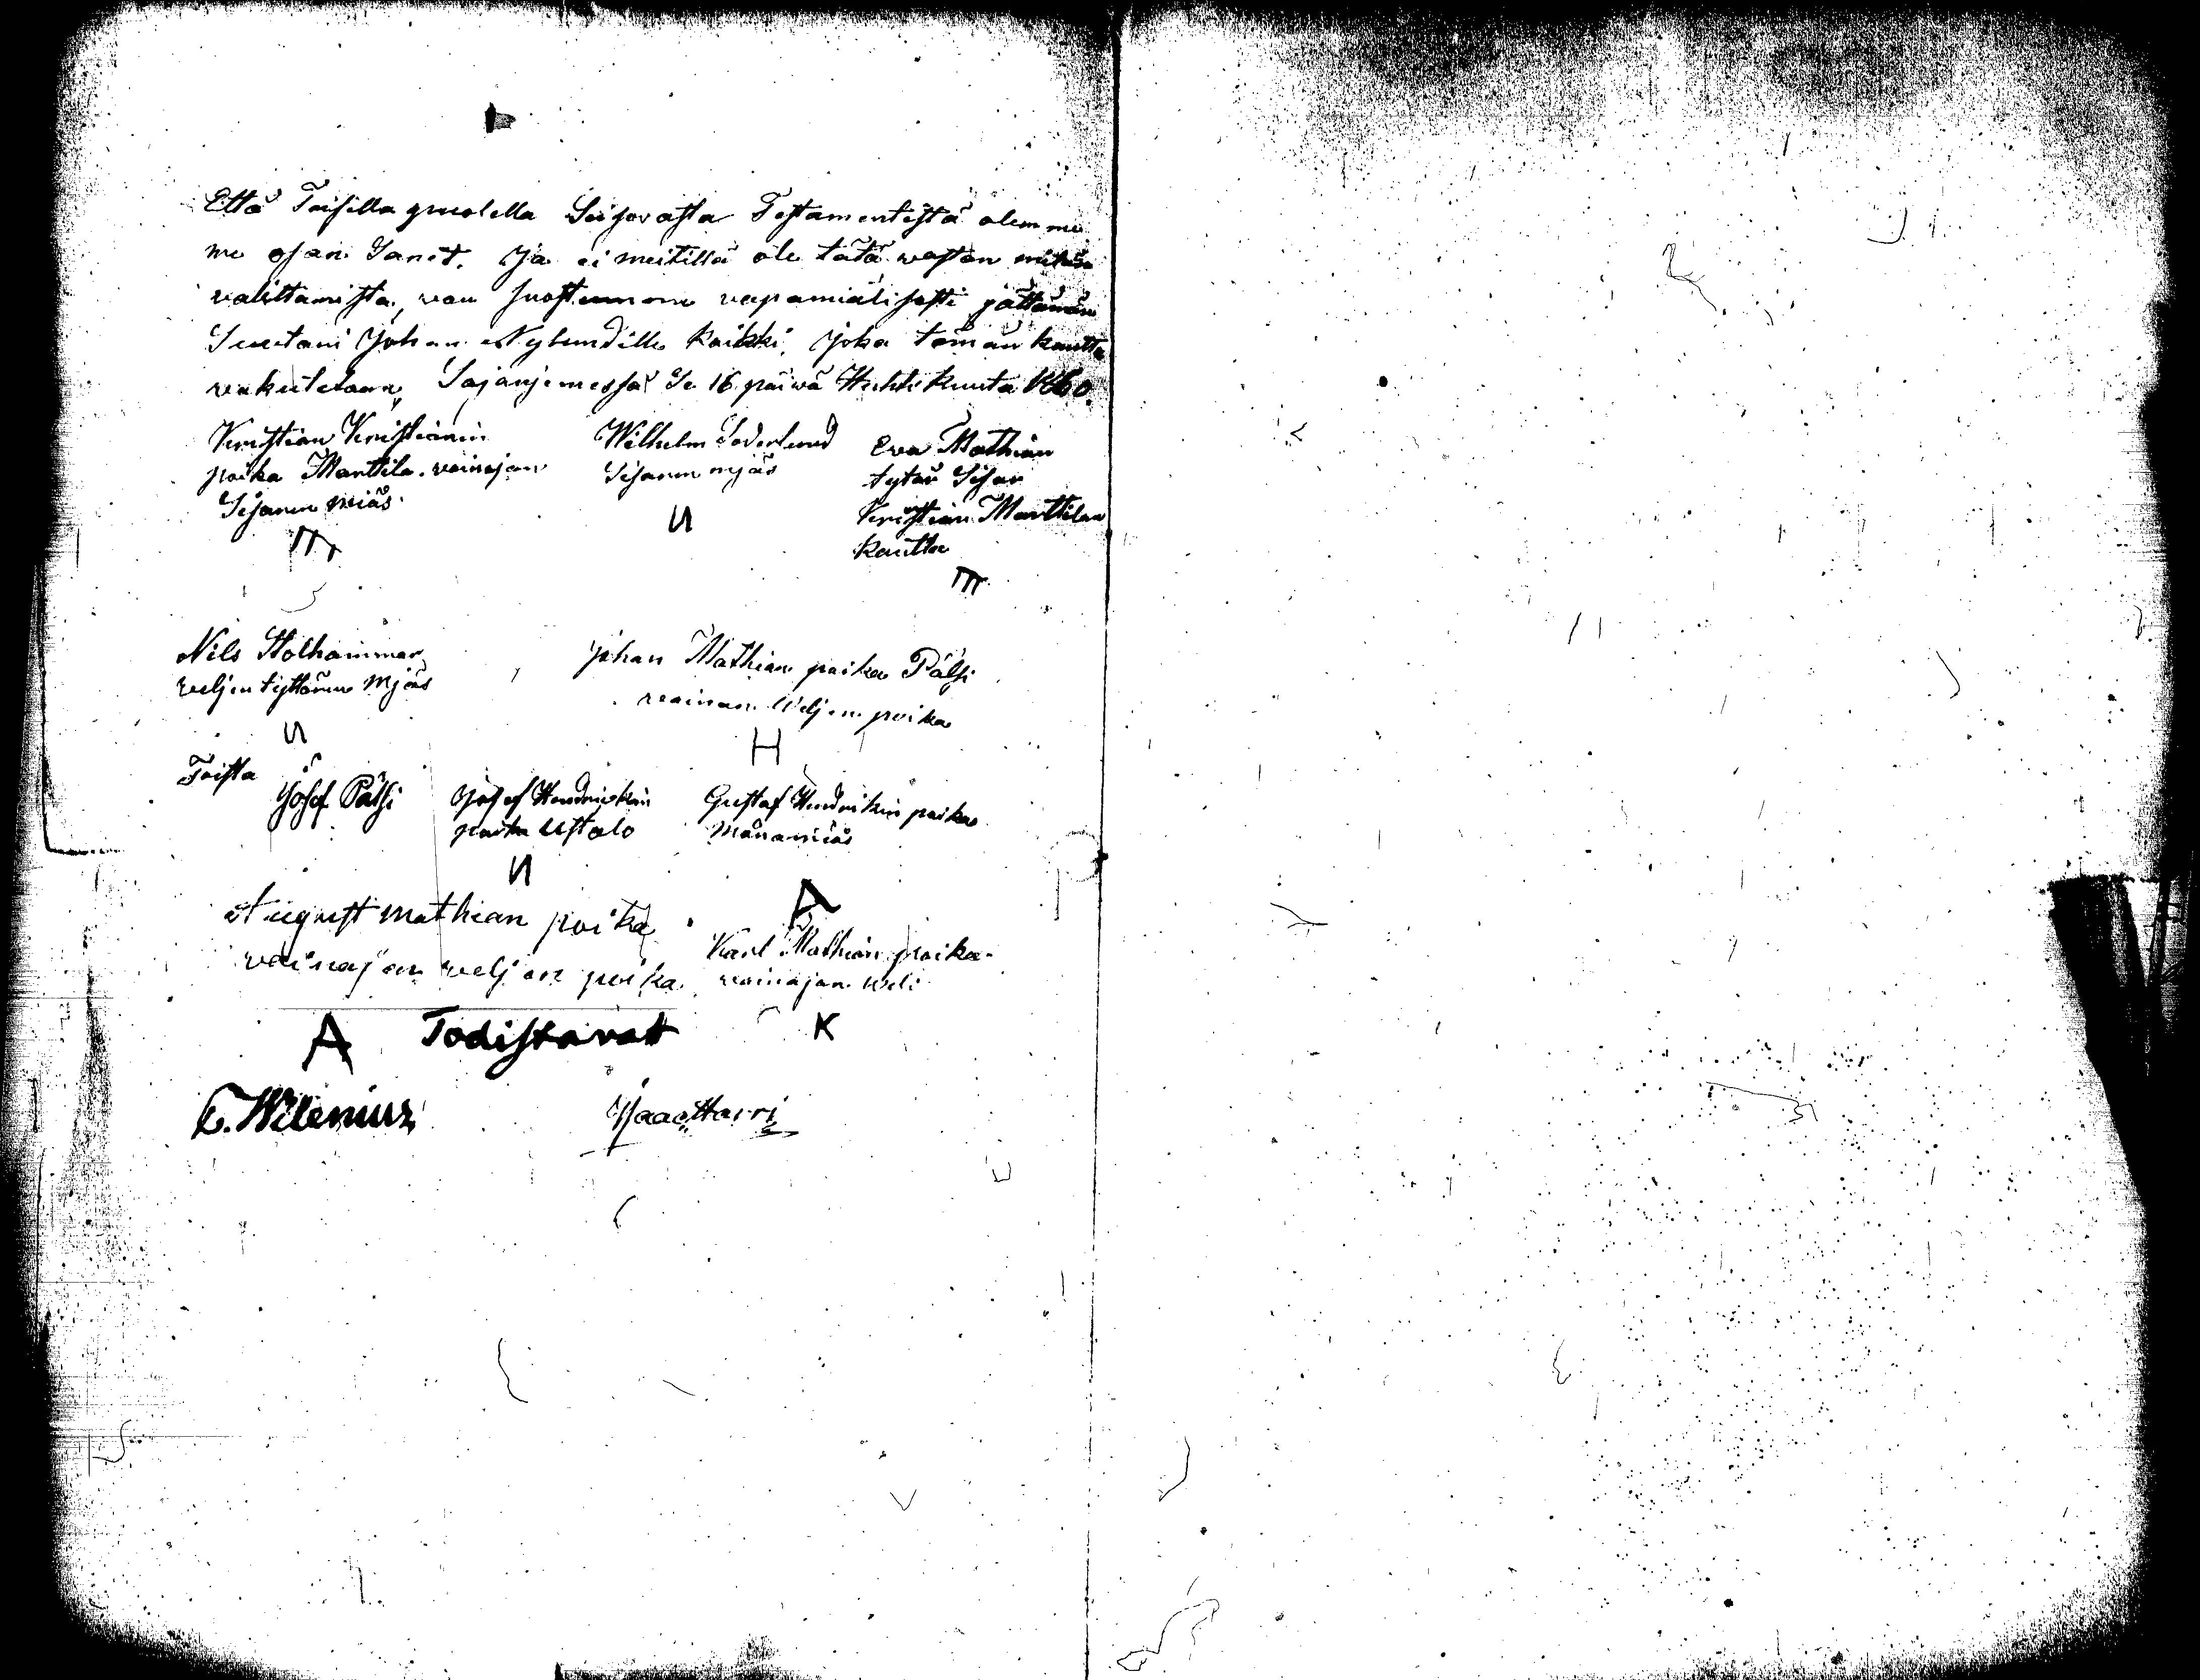 Että Toisella puolella Seisovasta Testamentistä olemme
me osan Sanet. Ja ei meitillä ole tätä wastan mitän
valittamista, van suostumme vapamiälisesti jättämän
Johan Nylundille kaikki, joka tämän kautta
vakutetaan, Se 16 päivä Huhti kuuta 1860.
Kristian Kristianin
poika Marttila vainajan
Sisaren miäs
Wilhelm Söderlund
Sisaren mjäs
Eva Mathian
tytär Sisar
Kristian Marttilan
kautta
Nils Stolhammar
veljen tyttären Mjäs
Johan Mathian poika Pälsi
vainan Veljen poika
H
Toista
Josef Pälsi
Josef Hendrickin
poika Ustalo
Gustaf Hendrikin poika
Mänamiäs
A
August Mathian poika
vainajan veljen poika
A
Karl Mathian poika
vainajan Veli
K
Todistavat
Wilenius